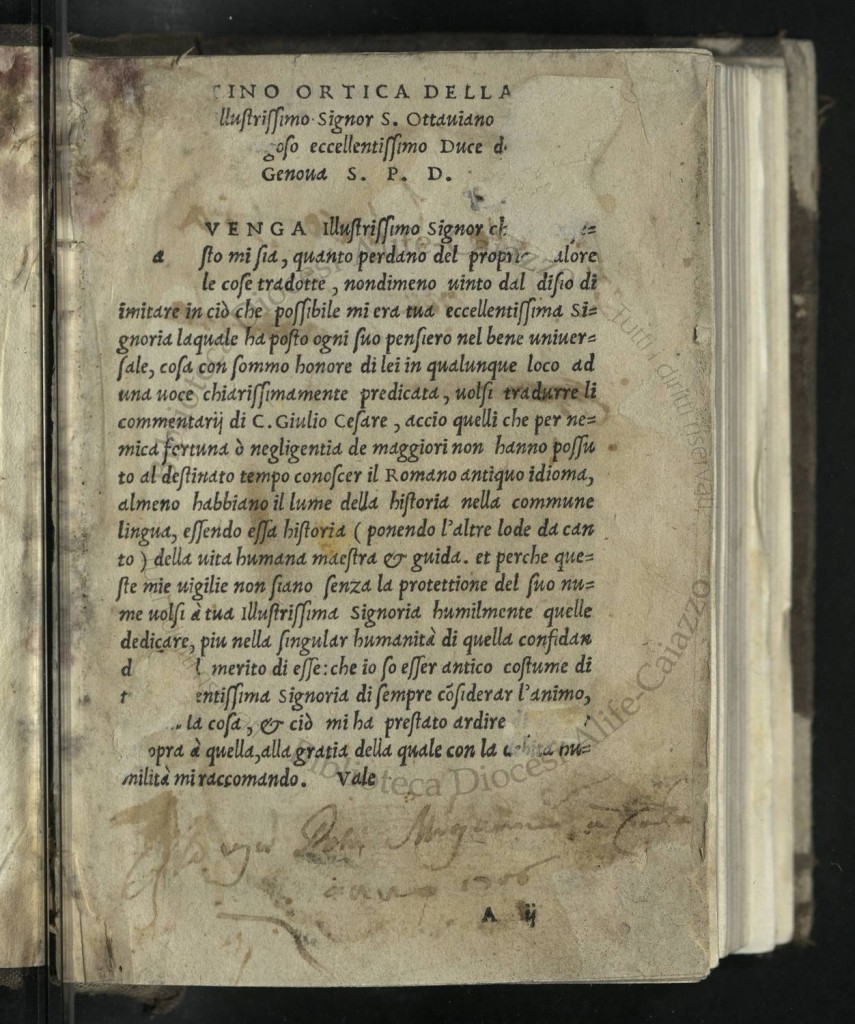 TINO ORTICA DELLA
Illustrissimo Signor S. Ottauiano
goso eccellentissimo Duce d
Genoua S. P. D.
VENGA Illustrissimo Signor ch
a sto mi sia, quanto perdano del propri alore
le cose tradotte, nondimeno uinto dal disio di
imitare in ciò che possibile mi era tua eccellentissima Si=
gnoria laquale ha posto ogni suo pensiero nel bene uniuer=
sale, cosa con sommo honore di lei in qualunque loco ad
una uoce chiarissimamente predicata, uolsi tradurre li
commentarij di C. Giulio Cesare, accio quelli che per ne=
mica fortuna ò negligentia de maggiori non hanno possu
to al destinato tempo conoscer il Romano antiquo idioma,
almeno habbiano il lume della historia nella commune
lingua, essendo essa historia ( ponendo l'altre lode da can
to ) della uita humana maestra & guida. et perche que=
ste mie uigilie non siano senza la protettione del suo nu=
me uolsi à tua Illustrissima Signoria humilmente quelle
dedicare, piu nella singular humanità di quella confidan
d l merito di esse: che io so esser antico costume di
t entissima Signoria di sempre cõsiderar l'animo,
la cosa, & ciò mi ha prestato ardire
opra à quella, alla gratia della quale con la debita hu=
milità mi raccomando. Vale
A ij
Biblioteca Diocesi Alife-Caiazzo
Tutti i diritti riservati